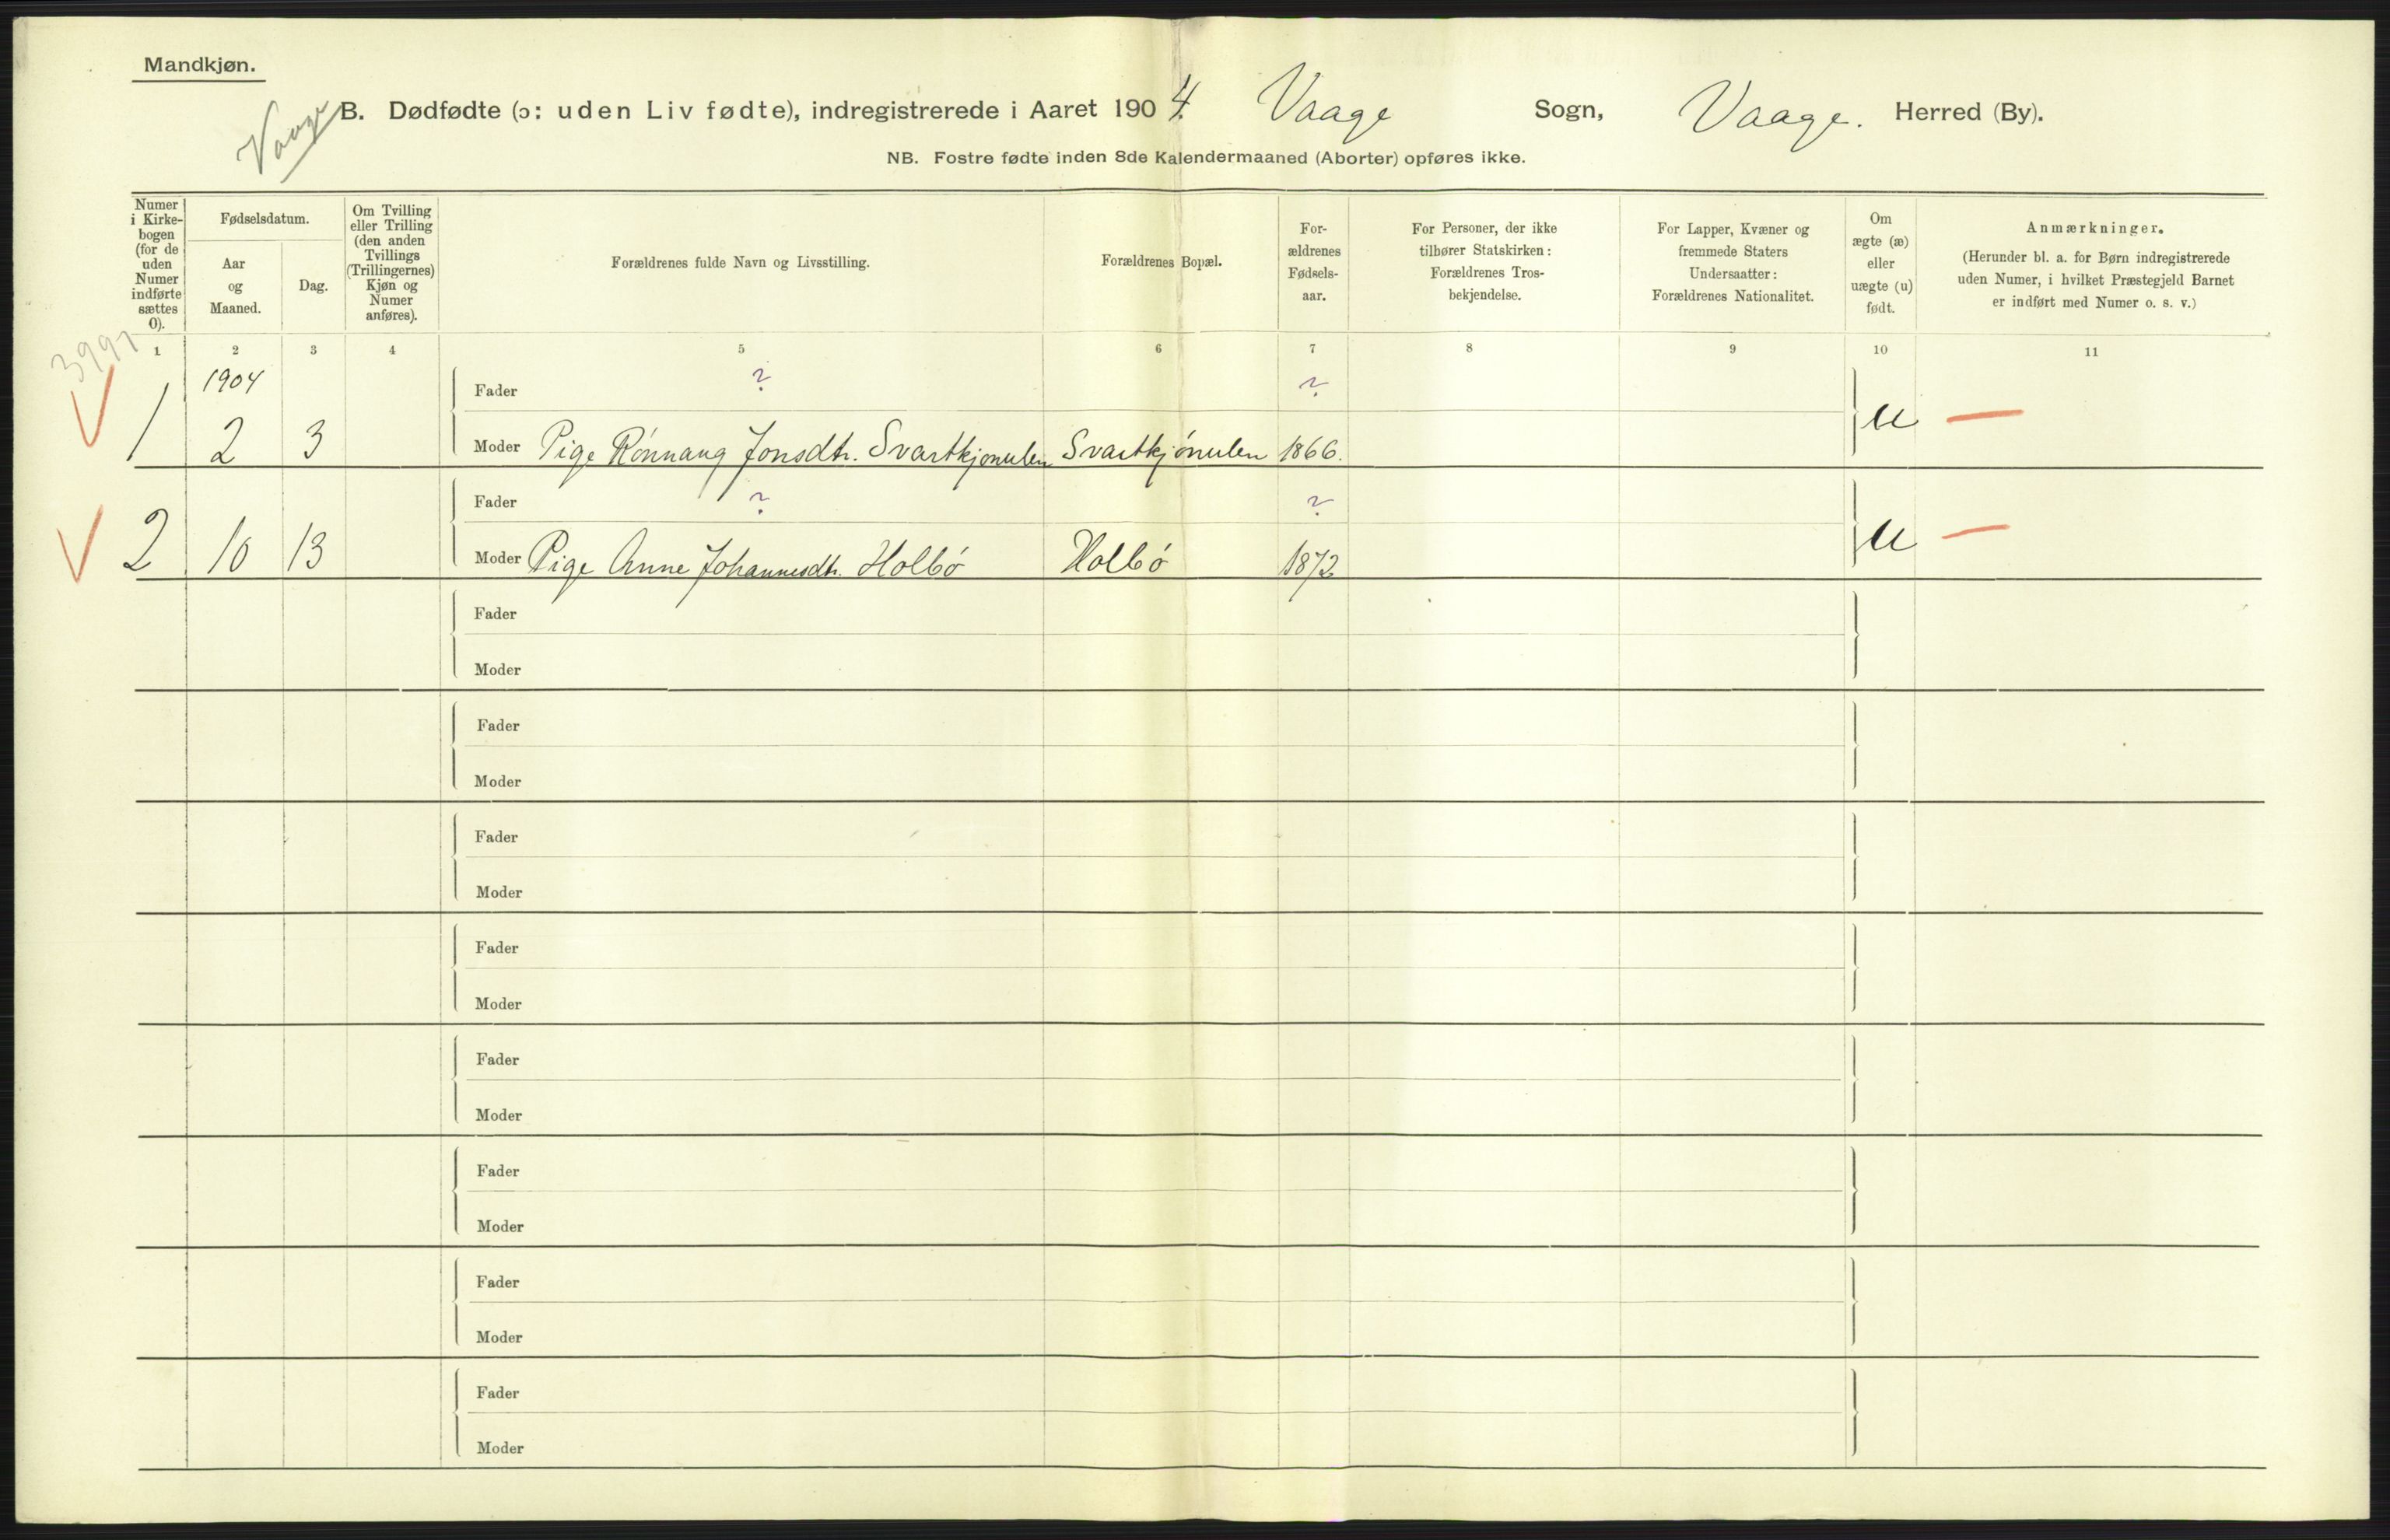 Mandkjøn.
Vaage
B. Dødfødte (ɔ: uden Liv fødte), indregistrerede i Aaret 1904. Vaage Sogn, Vaage. Herred (By).
NB. Fostre fødte inden 8de Kalendermaaned (Aborter) opføres ikke.
Numer
i Kirke-
bogen
(for de
uden
Numer
indførte
sættes
0).
Fødselsdatum.
Aar
og
Maaned.
Dag.
Om Tvilling
eller Trilling
(den anden
Tvillings
(Trillingernes)
Kjøn og
Numer
anføres).
Forældrenes fulde Navn og Livsstilling.
Forældrenes Bopæl.
For-
ældrenes
Fødsels-
aar.
For Personer, der ikke
tilhører Statskirken:
Forældrenes Tros-
bekjendelse.
For Lapper, Kvæner og
fremmede Staters
Undersaatter:
Forældrenes Nationalitet.
Om
ægte (æ)
eller
uægte (u)
født.
Anmærkninger.
(Herunder bl. a. for Børn indregistrerede
uden Numer, i hvilket Præstegjeld Barnet
er indført med Numer o. s. v.)
1 2 3 4 5 6 7 8 9 10 11
1904 Fader ? ?
1 2 3 Moder Pige Rónnaug Jonsdtr. Svartkjonulen Svartkjónulen 1866. u —
Fader ? ?
2 10 13 Moder Pige Anne Johannesdtr. Holbó Holbó 1872 u —
Fader
Moder
Fader
Moder
Fader
Moder
Fader
Moder
Fader
Moder
Fader
Moder
Fader
Moder
Fader
Moder